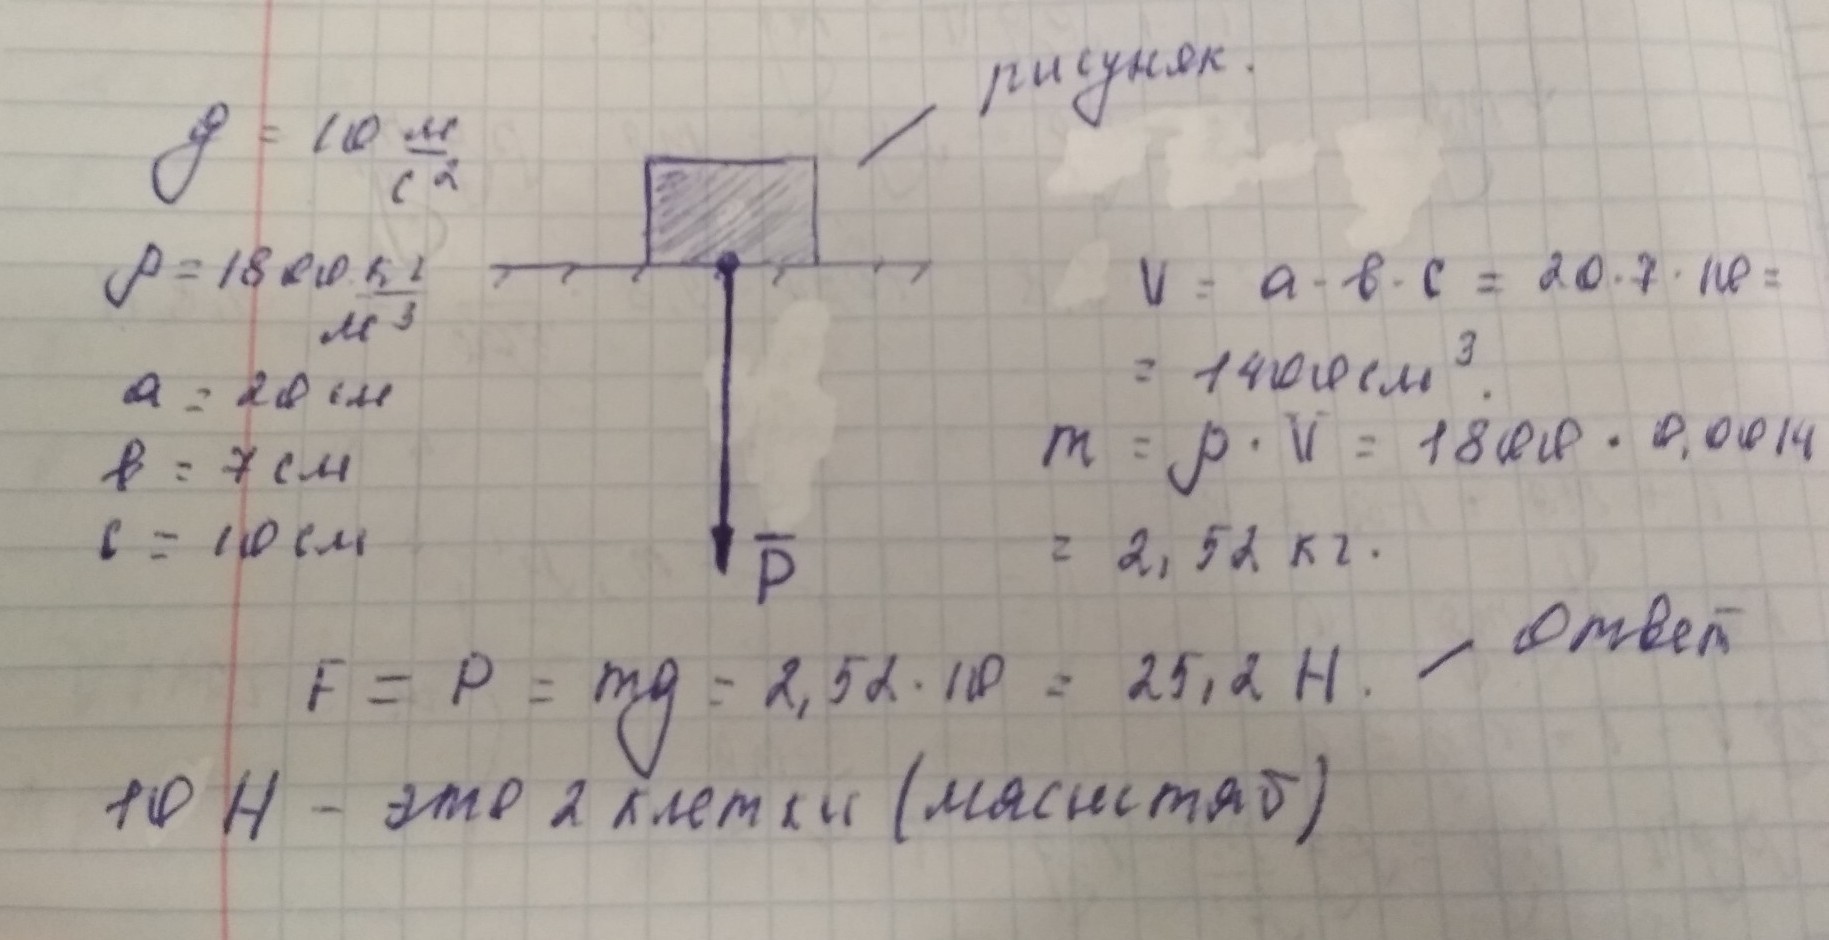 рисунок.
g = 10 м/с²
ρ = 1800 кг/м³
a = 20 см
в = 7 см
c = 10 см
P̅
V = a · в · c = 20 · 7 · 10 =
= 1400 см³.
m = ρ · V = 1800 · 0,0014
= 2,52 кг.
F = P = mg = 2,52 · 10 = 25,2 Н. – Ответ
10 Н – это 2 клетки (масштаб)